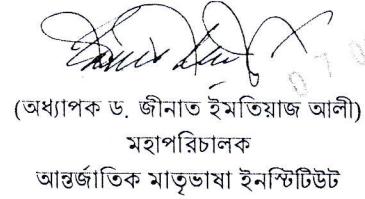 (অধ্যাপক ড. জীনাত ইমতিয়াজ আলী)
মহাপরিচালক
আন্তর্জাতিক মাতৃভাষা ইনস্টিটিউট